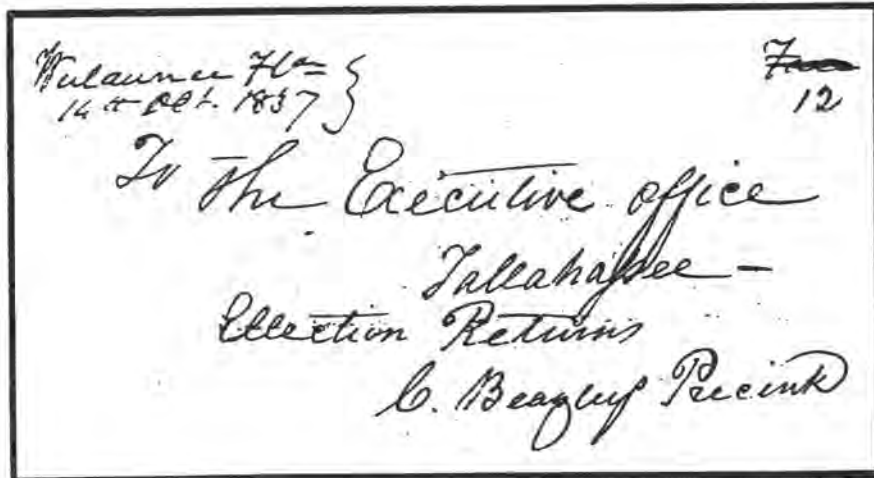 Wulaunee Fla
14th Oct. 1837
Free
12
To the Executive office
Tallahassee -
Ellection Returns
C. Beazleys Precink